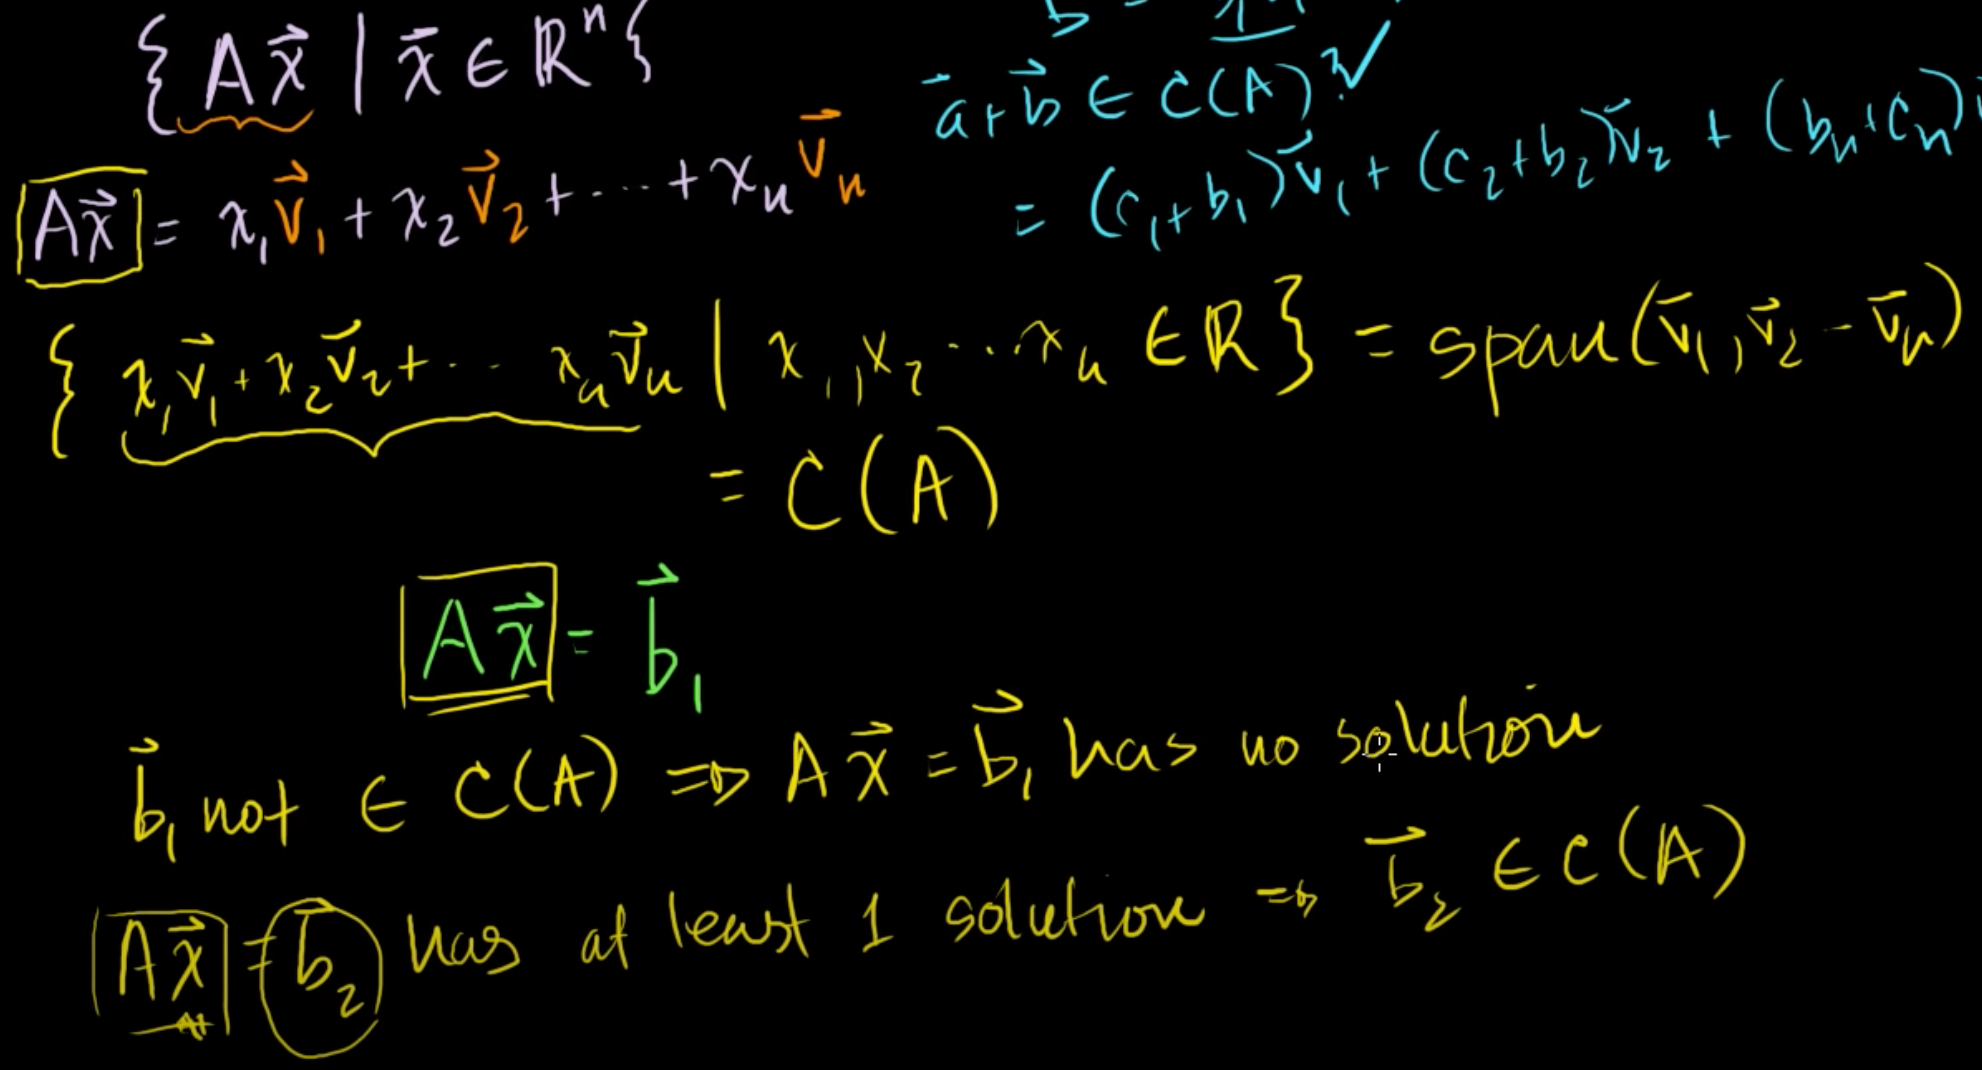 { Ax⃗ | x⃗ ∈ ℝⁿ }
a⃗ + b⃗ ∈ C(A)? ✓
Ax⃗ = x₁v⃗₁ + x₂v⃗₂ + ... + xₙv⃗ₙ
= (c₁+b₁)v⃗₁ + (c₂+b₂)v⃗₂ + (bₙ+cₙ)
{ x₁v⃗₁ + x₂v⃗₂ + ... xₙv⃗ₙ | x₁, x₂ ... xₙ ∈ ℝ } = span(v⃗₁, v⃗₂ - v⃗ₙ)
= C(A)
Ax⃗ = b⃗₁
b⃗₁ not ∈ C(A) ⇒ Ax⃗ = b⃗₁ has no solution
Ax⃗ = b⃗₂ has at least 1 solution ⇒ b⃗₂ ∈ C(A)